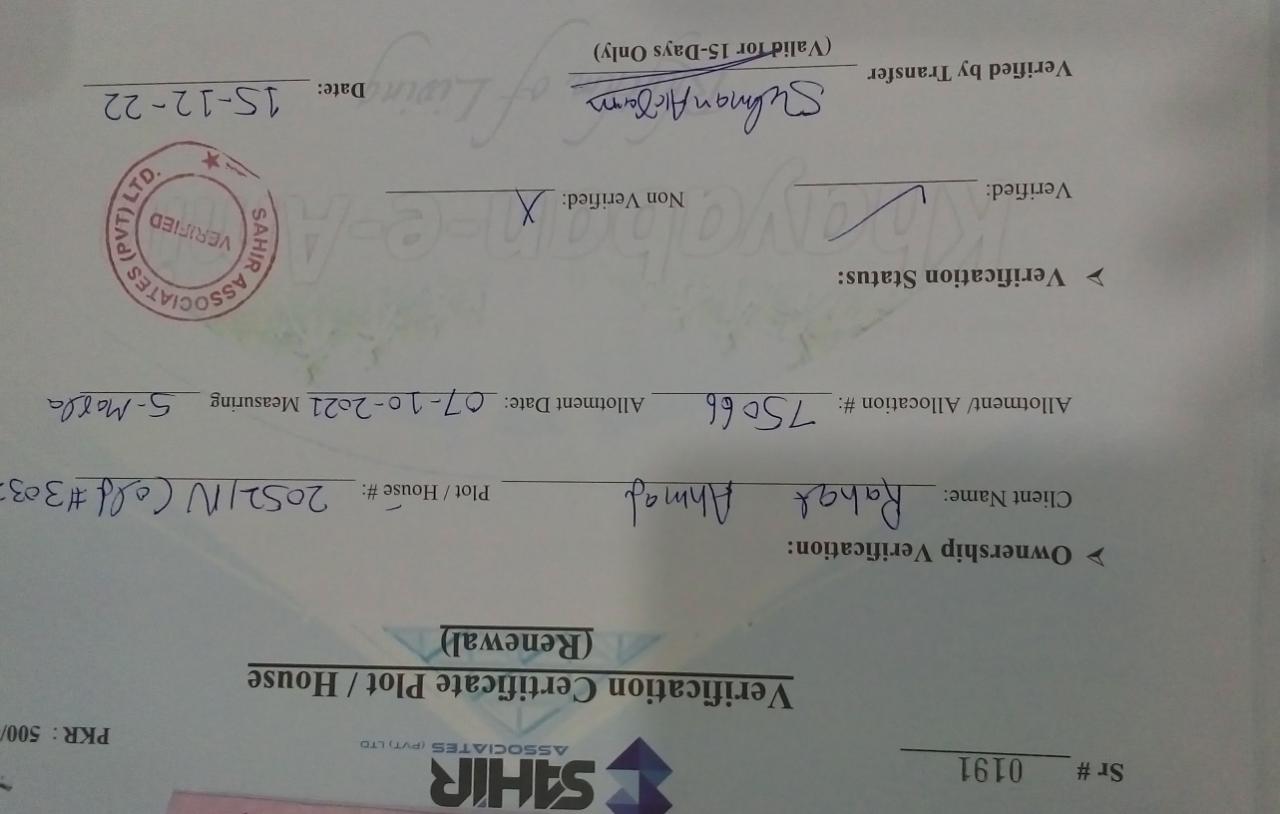 SAHIR
ASSOCIATES (PVT) LTD
Sr # 0191
PKR : 500/
Verification Certificate Plot / House
(Renewal)
➢ Ownership Verification:
Client Name: Rahat Ahmad Plot / House #: 2052/N (old # 303
Allotment/ Allocation #: 75066 Allotment Date: 07-10-2021 Measuring 5-Marla
➢ Verification Status:
Verified: ✓ Non Verified: X
SAHIR ASSOCIATES (PVT) LTD.
VERIFIED
Khayaban-e-A
Verified by Transfer Salman Date: 15-12-22
(Valid for 15-Days Only)
of Living